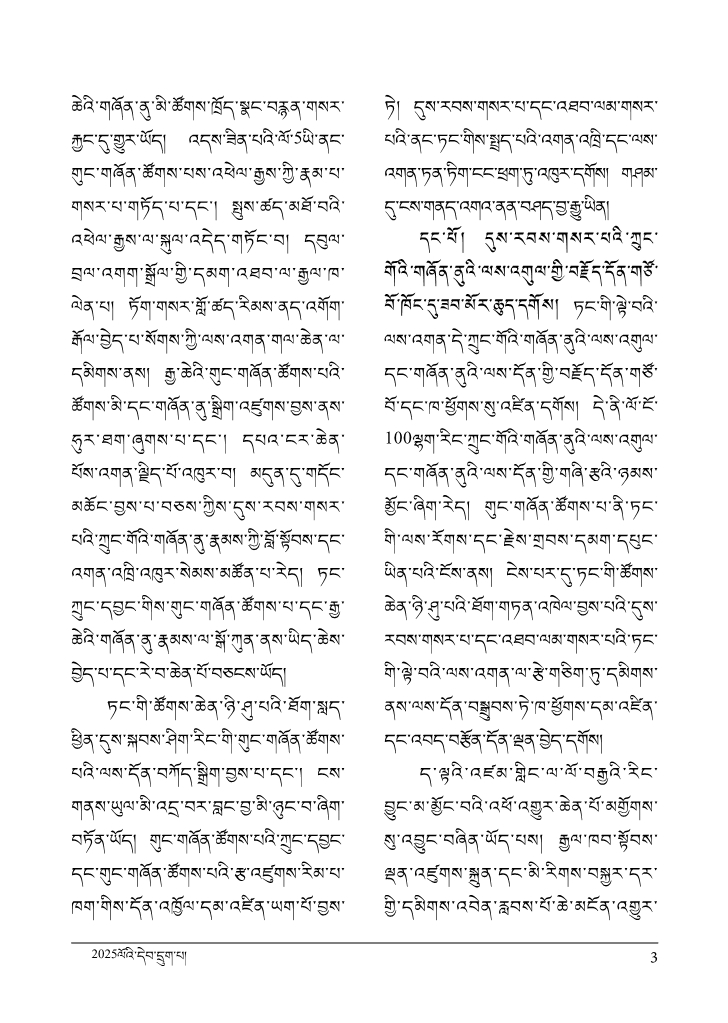 ཆེའི་གཞོན་ནུ་མི་ཚོགས་ཁྲོད་སྣང་བརྙན་གསར་
རྐྱང་དུ་གྱུར་ཡོད། འདས་ཟིན་པའི་ལོ་5ཡི་ནང་
གུང་གཞོན་ཚོགས་པས་འཕེལ་རྒྱས་ཀྱི་རྣམ་པ་
གསར་པ་གཏོད་པ་དང་། སྤུས་ཚད་མཐོ་བའི་
འཕེལ་རྒྱས་ལ་སྐུལ་འདེད་གཏོང་བ། དབུལ་
བྲལ་འགག་སྒྲོལ་གྱི་དམག་འཐབ་ལ་རྒྱལ་ཁ་
ལེན་པ། ཏོག་གསར་གློ་ཚད་རིམས་ནད་འགོག་
རྒོལ་བྱེད་པ་སོགས་ཀྱི་ལས་འགན་གལ་ཆེན་ལ་
དམིགས་ནས། རྒྱ་ཆེའི་གུང་གཞོན་ཚོགས་པའི་
ཚོགས་མི་དང་གཞོན་ནུ་སྒྲིག་འཛུགས་བྱས་ནས་
ཧུར་ཐག་ཞུགས་པ་དང་། དཔའ་ངར་ཆེན་
པོས་འགན་ལྗིད་པོ་འཁུར་བ། མདུན་དུ་གདོང་
མཆོང་བྱས་པ་བཅས་ཀྱིས་དུས་རབས་གསར་
པའི་ཀྲུང་གོའི་གཞོན་ནུ་རྣམས་ཀྱི་བློ་སྟོབས་དང་
འགན་འཁྲི་འཁུར་སེམས་མཚོན་པ་རེད། ཏང་
ཀྲུང་དབྱང་གིས་གུང་གཞོན་ཚོགས་པ་དང་རྒྱ་
ཆེའི་གཞོན་ནུ་རྣམས་ལ་སྒོ་ཀུན་ནས་ཡིད་ཆེས་
བྱེད་པ་དང་རེ་བ་ཆེན་པོ་བཅངས་ཡོད།
ཏང་གི་ཚོགས་ཆེན་ཉི་ཤུ་པའི་ཐོག་སླད་
ཕྱིན་དུས་སྐབས་ཤིག་རིང་གི་གུང་གཞོན་ཚོགས་
པའི་ལས་དོན་བཀོད་སྒྲིག་བྱས་པ་དང་། ངས་
གནས་ཡུལ་མི་འདྲ་བར་བླང་བྱ་མི་ཉུང་བ་ཞིག་
བཏོན་ཡོད། གུང་གཞོན་ཚོགས་པའི་ཀྲུང་དབྱང་
དང་གུང་གཞོན་ཚོགས་པའི་རྩ་འཛུགས་རིམ་པ་
ཁག་གིས་དོན་འཁྱོལ་དམ་འཛིན་ཡག་པོ་བྱས་
ཏེ། དུས་རབས་གསར་པ་དང་འཐབ་ལམ་གསར་
པའི་ནང་ཏང་གིས་སྤྲད་པའི་འགན་འཁྲི་དང་ལས་
འགན་ཏན་ཏིག་ངང་ཕྲག་ཏུ་འཁུར་དགོས། གཤམ་
དུ་ངས་གནད་འགའ་ནན་བཤད་བྱ་རྒྱུ་ཡིན།
དང་པོ། དུས་རབས་གསར་པའི་ཀྲུང་
གོའི་གཞོན་ནུའི་ལས་འགུལ་གྱི་བརྗོད་དོན་གཙོ་
བོ་ཁོང་དུ་ཟབ་མོར་ཆུད་དགོས། ཏང་གི་ལྟེ་བའི་
ལས་འགན་དེ་ཀྲུང་གོའི་གཞོན་ནུའི་ལས་འགུལ་
དང་གཞོན་ནུའི་ལས་དོན་གྱི་བརྗོད་དོན་གཙོ་
བོ་དང་ཁ་ཕྱོགས་སུ་འཛིན་དགོས། དེ་ནི་ལོ་ངོ་
100ལྷག་རིང་ཀྲུང་གོའི་གཞོན་ནུའི་ལས་འགུལ་
དང་གཞོན་ནུའི་ལས་དོན་གྱི་གཞི་རྩའི་ཉམས་
མྱོང་ཞིག་རེད། གུང་གཞོན་ཚོགས་པ་ནི་ཏང་
གི་ལས་རོགས་དང་རྗེས་གྲབས་དམག་དཔུང་
ཡིན་པའི་ངོས་ནས། ངེས་པར་དུ་ཏང་གི་ཚོགས་
ཆེན་ཉི་ཤུ་པའི་ཐོག་གཏན་འཁེལ་བྱས་པའི་དུས་
རབས་གསར་པ་དང་འཐབ་ལམ་གསར་པའི་ཏང་
གི་ལྟེ་བའི་ལས་འགན་ལ་རྩེ་གཅིག་ཏུ་དམིགས་
ནས་ལས་དོན་བསྒྲུབས་ཏེ་ཁ་ཕྱོགས་དམ་འཛིན་
དང་འབད་བརྩོན་དོན་ལྡན་བྱེད་དགོས།
ད་ལྟའི་འཛམ་གླིང་ལ་ལོ་བརྒྱའི་རིང་
བྱུང་མ་མྱོང་བའི་འཕོ་འགྱུར་ཆེན་པོ་མགྱོགས་
སུ་འབྱུང་བཞིན་ཡོད་པས། རྒྱལ་ཁབ་སྟོབས་
ལྡན་འཛུགས་སྐྲུན་དང་མི་རིགས་བསྐྱར་དར་
གྱི་དམིགས་འབེན་རླབས་པོ་ཆེ་མངོན་འགྱུར་
2025ལོའི་དེབ་དྲུག་པ།
3